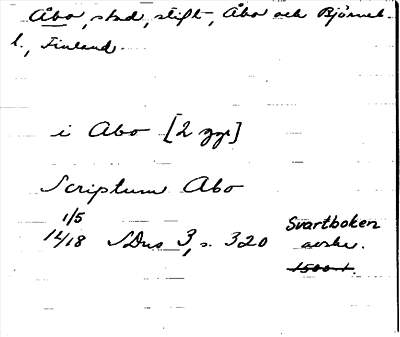 Åbo, stad, stift, Åbo och Björneb.
l., Finland.
i Abo [2 ggr]
Scriptum Abo
1/5
1418 SDns 3, s. 320
Svartboken
avskr.